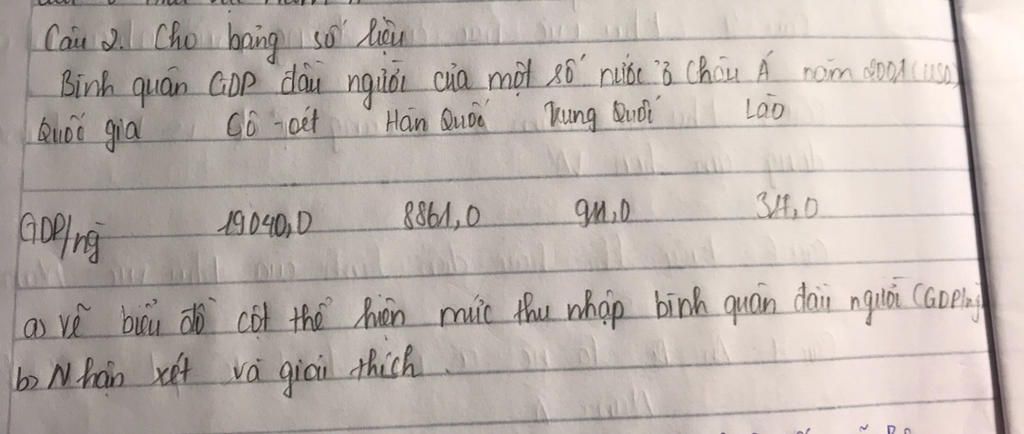 Câu 2. Cho bảng số liệu
Bình quân GDP đầu người của một số nước ở Châu Á năm 2001 (USD)
Quốc gia Cô-oét Hàn Quốc Trung Quốc Lào
GDP/ng 19040,0 8861,0 911,0 317,0
a) vẽ biểu đồ cột thể hiện mức thu nhập bình quân đầu người (GDP/ng)
b) Nhận xét và giải thích.